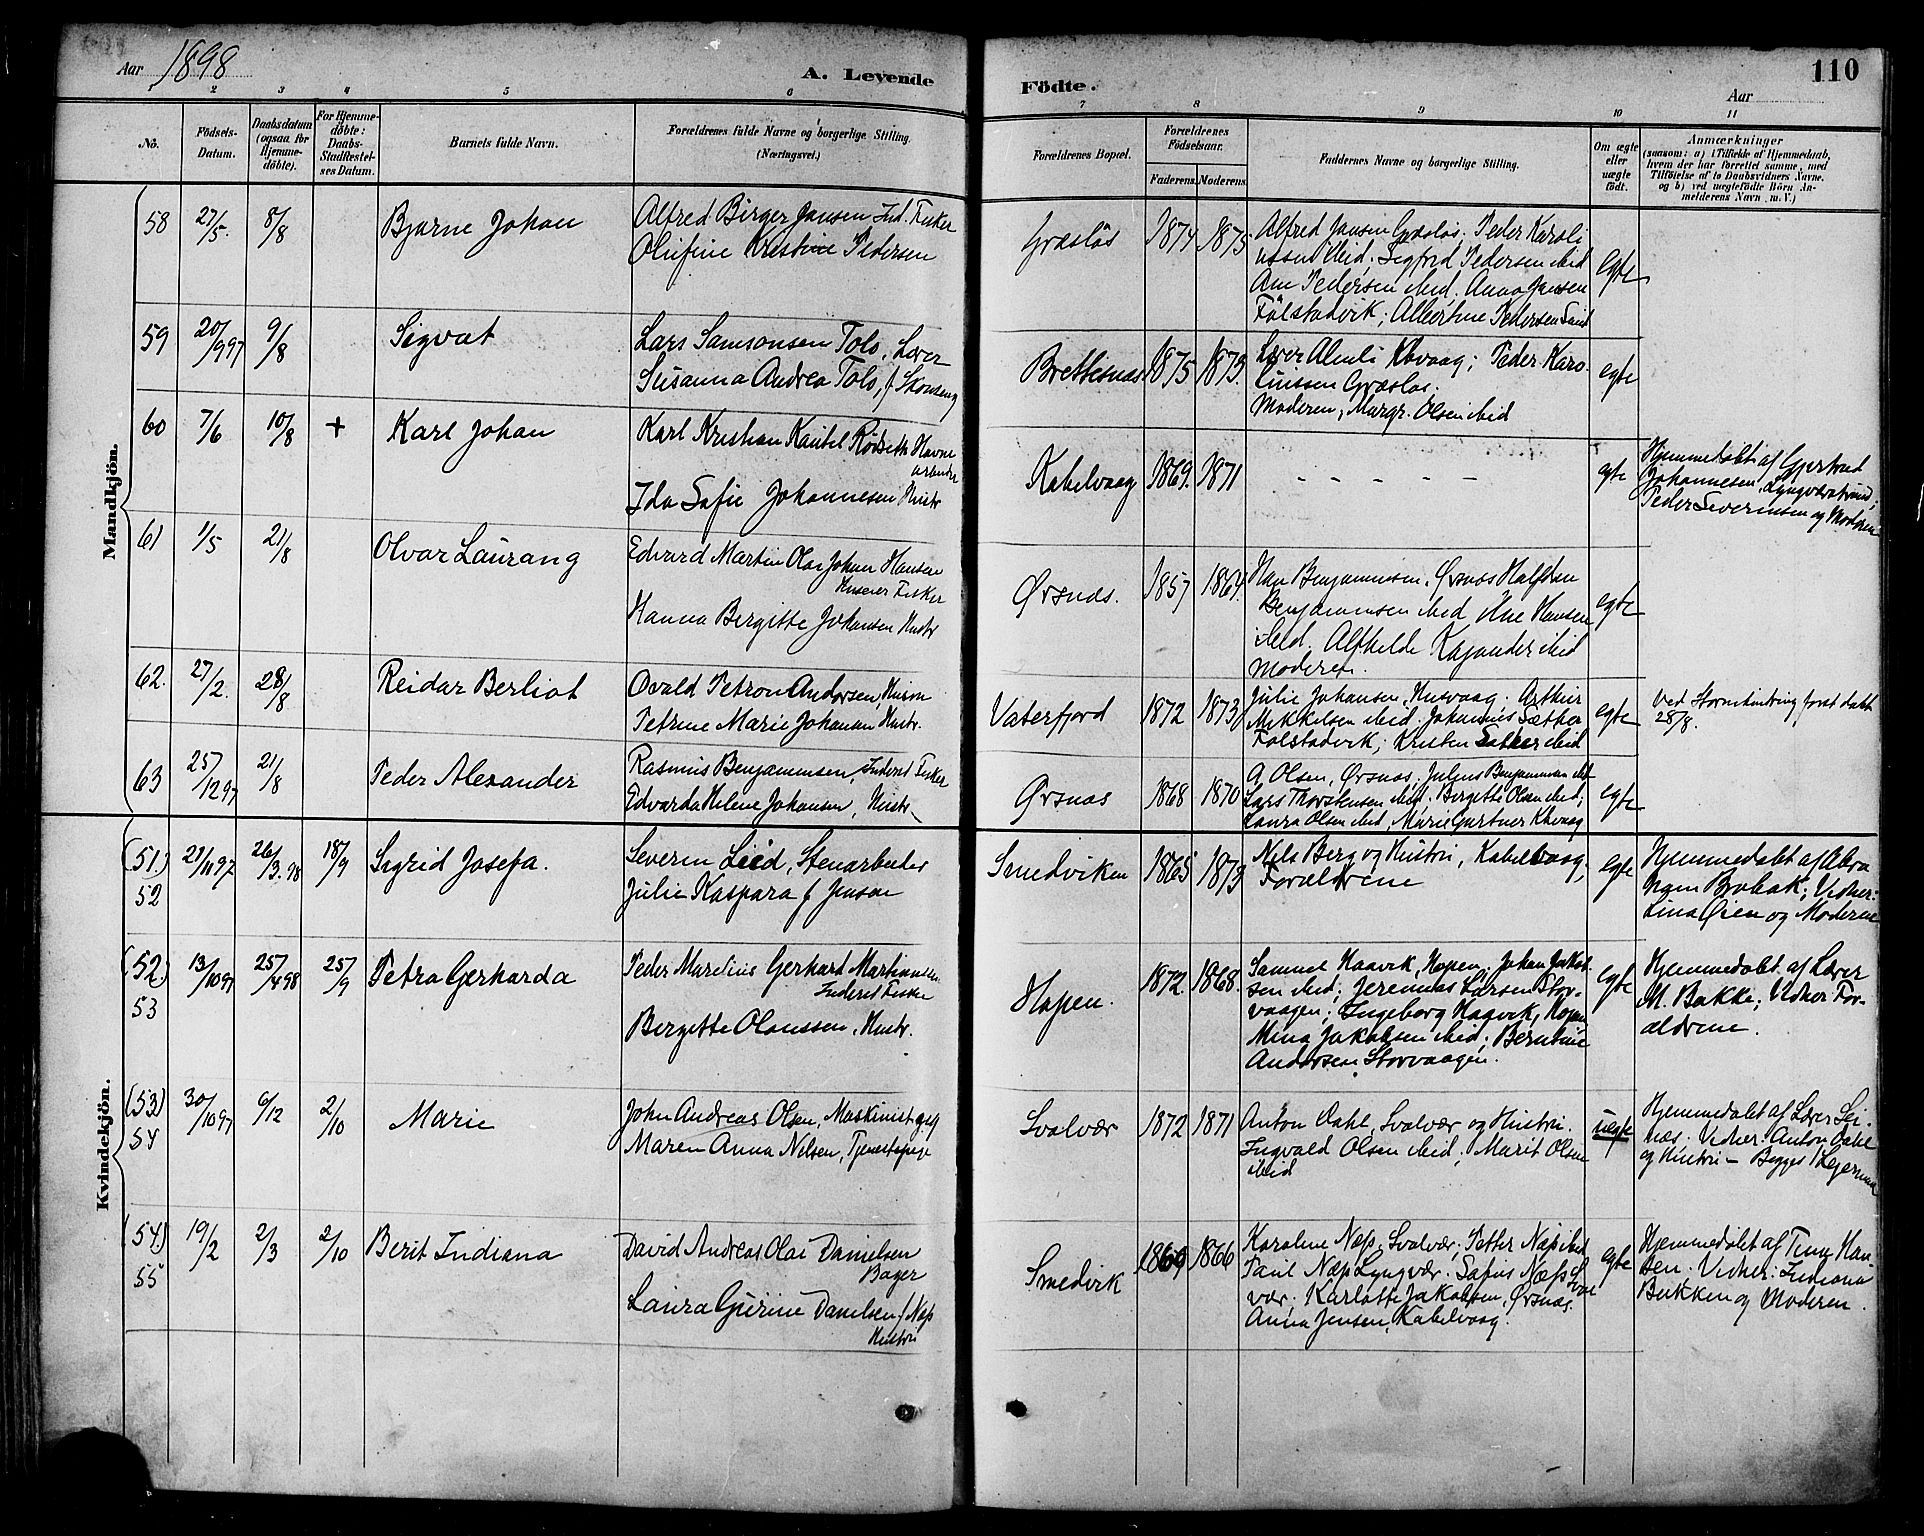 Aar 1898
A. Levende
Födte.
Aar
110
1 2 3 4 5 6 7 8 9 10 11
No.
Födsels-
Datum.
Daabsdatum
(ogsaa for
Hjemme-
döbte).
For Hjemme-
döbte:
Daabs-
Stadfæstel-
ses Datum.
Barnets fulde Navn.
Forældrenes fulde Navne og borgerlige Stilling.
(Næringsvei.)
Forældrenes Bopæl.
Forældrenes
Födselsaar.
Faderens. Moderens.
Faddernes Navne og borgerlige Stilling.
Om ægte
eller
uægte
födt.
Anmærkninger
(saasom: a) i Tilfælde af Hjemmedaab,
hvem der har forrettet samme, med
Tilföielse af to Daabsvidners Navne,
og b) ved uægtefödte Börn An-
melderens Navn, m. V.)
Mandkjön.
58 27/5. 8/8 Bjarne Johan
Alfred Birger Jansen Ind. Fisker
Olufine Kristine Pedersen
Græsløs 1874 1875
Alfred Jansen Græsløs; Peder Karoli
nssen ibid. Sigfred Pedersen ibid
Ane Pedersen ibid. Anna Jansen
Fölstadvik; Albertine Pedersen
egte
59 20/9 97 9/8 Sigvat
Lars Samsonsen Tolo, Lærer
Susanna Andrea Tolo, f Skonseng
Brettesnæs 1875 1873.
Lærer Kbvaag; Peder Karo-
linssen Græsløs.
Moderen; Margr. Olsen ibid
egte
60 7/6 10/8 + Karl Johan
Karl Kristian Kantel Rödseth Havne
arbeider
Ida Sofie Johannesen Hustr
Kabelvaag 1869. 1871
- - - - -
egte
Hjemmedøbt af Gjertrud
Johannesen, Lyngværstrand;
Peder Severinsen og Moderen
61 1/5 21/8 Olvar Laurang
Edvard Martin Olai Johan Hansen
Huseier Fisker
Hanna Bergitte Johansen Hustr
Ørsnæs. 1857 1864.
Benjaminsen, Ørsnæs Halfdan
Benjaminsen ibid Hansen
ibid. Alfhilde Kajander ibid
Moderen.
egte
62. 27/2. 28/8 Reidar Berliot
Ovald Petron Andersen, Husm
Petrine Marie Johansen Hustr.
Vaterfjord 1872 1873
Julie Johansen, Husvaag; Arthur
Mikkelsen ibid. Johannes Sæther
Fölstadvik; Kristen Sæther ibid
egte
Ved først døbt
28/8.
63 25/12 97 21/8 Peder Alexander
Rasmus Benjaminsen, Inderst Fisker
Edvarda Helene Johansen, Hustr
Ørsnæs 1868 1870
A Olsen, Ørsnæs. Julius Benjaminsen ibid
Lars Thorstensen ibid; Bergitte Olsen ibid;
Laura Olsen ibid, Marie Gartner Kbvaag
egte
Kvindekjön.
(51.)
52
21/11 97 26/3 98 18/9 Sigrid Josefa.
Severin Lied, Stenarbeider
Julie Kaspara f Jensen
Smedviken 1865 1873
Nils Berg og Hustru, Kabelvaag;
Forældrene
egte
Hjemmedøbt af Abra
ham Brubak; Vidner:
Lina Øien og Moderen
(52)
53
13/10 97 25/4 98 25/9 Petra Gerharda
Peder Marelius Gerhard Martinussen
Inderst Fisker
Bergitte Olaussen, Hustr.
Hopen. 1872. 1868.
Samuel Haavik, Hopen, Johan Jakob-
sen ibid; Jeremias Larsen Stor-
vaagen; Ingeborg Haavik, Hopen
Mina Jakobsen ibid; Berntine
Andersen Storvaagen.
egte
Hjemmedøbt af Lærer
M. Bakke; Vidner For-
ældrene.
(53)
54
30/10 97 6/12 2/10 Marie
John Andreas Olsen, Maskinist
Maren Anna Nilsen, Tjenestepige
Svolvær 1872 1871
Anton Dahl, Svolvær og Hustru.
Ingvald Olsen ibid; Marit Olsen
ibid
uegte
Hjemmedøbt af Lærer Lei-
næs. Vidner: Anton Dahl
og Hustru – Begges 1 Leiermaal
(54)
55
19/2 2/3 2/10 Berit Indiana
David Andreas Olai Danielsen
Bager
Laura Gurine Danielsen f Næss
Hustru
Smedvik 1869 1866
Karoline Næss, Svolvær; Petter Næss ibid
Paul Næss Lyngvær. Sofus Næss Svol
vær. Karlotte Jakobsen, Ørsnæs.
Anna Jensen, Kabelvaag.
egte
Hjemmedøbt af Tina Han-
sen. Vidner: Indiana
Bakken og Moderen.